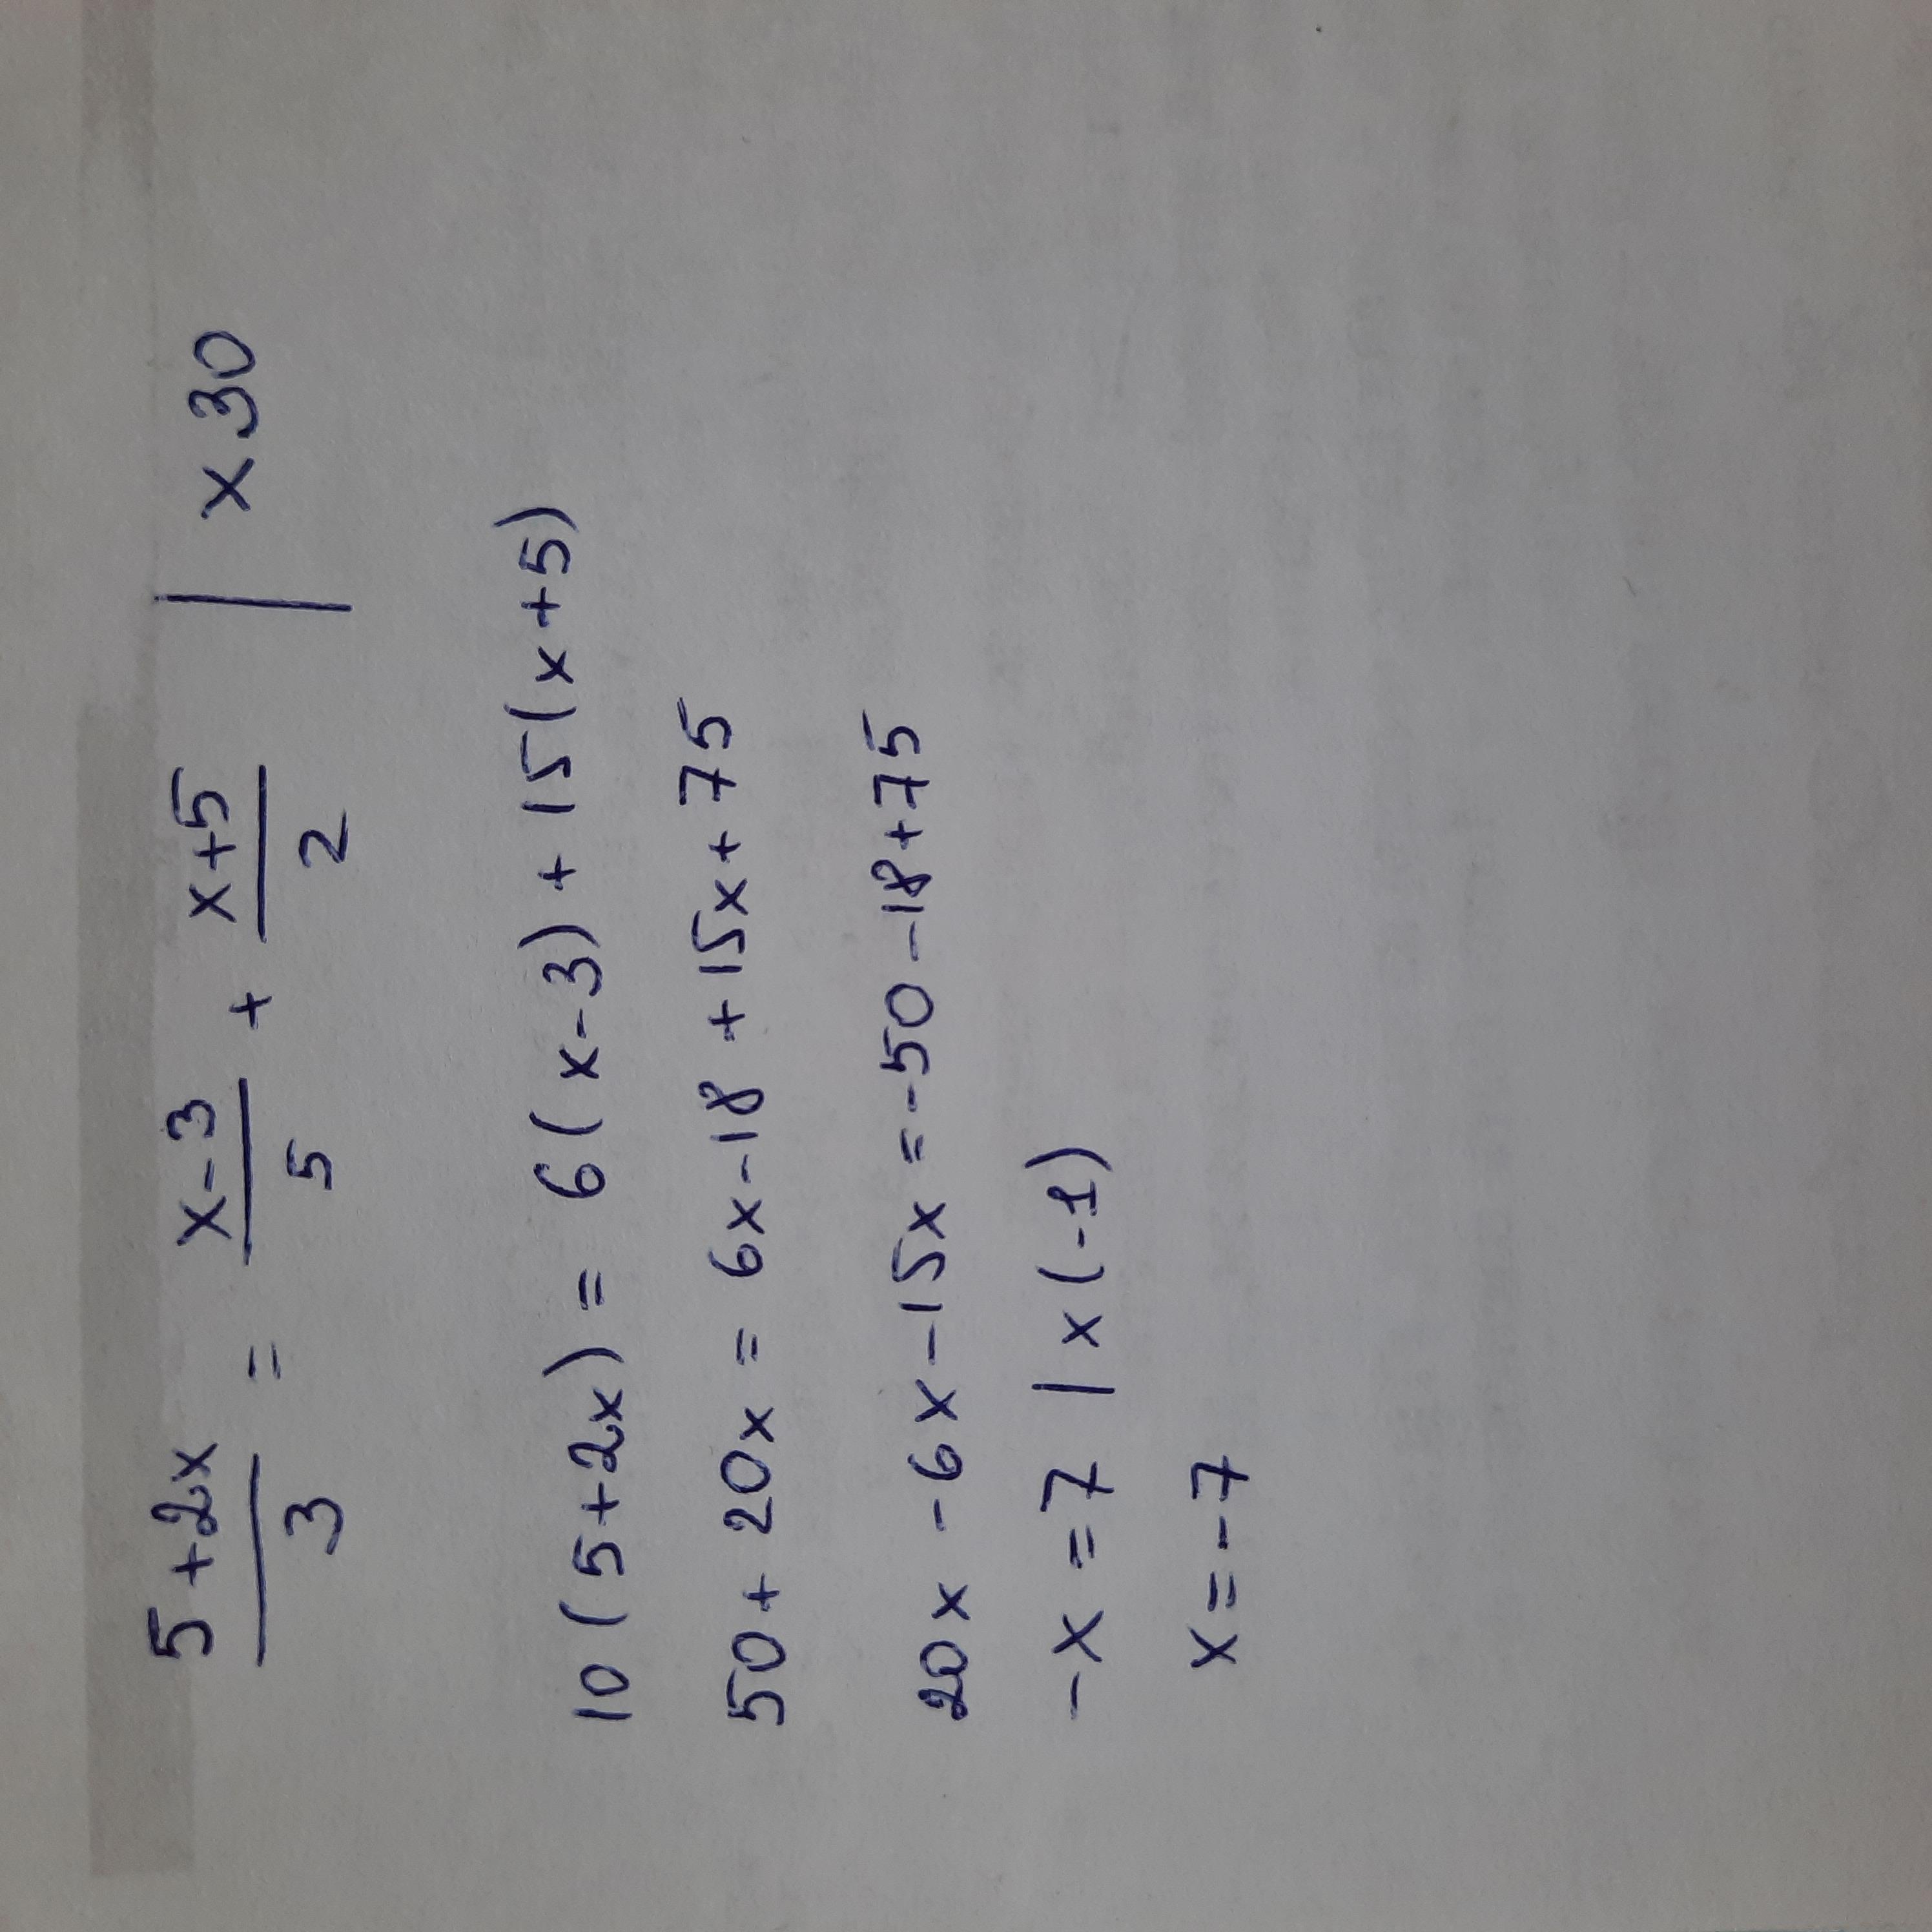 5+2x/3 = x-3/5 + x+5/2 | x30
10(5+2x) = 6(x-3) + 15(x+5)
50+20x = 6x-18+15x+75
20x-6x-15x = -50-18+75
-x=7 | x(-1)
x=-7